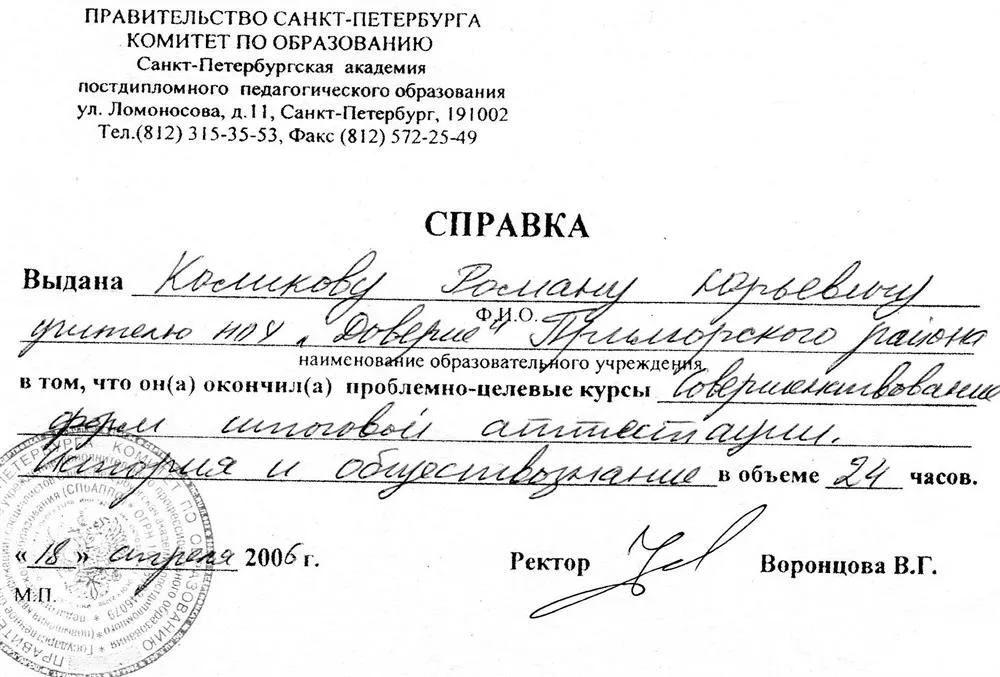 ПРАВИТЕЛЬСТВО САНКТ-ПЕТЕРБУРГА
КОМИТЕТ ПО ОБРАЗОВАНИЮ
Санкт-Петербургская академия
постдипломного педагогического образования
ул. Ломоносова, д.11, Санкт-Петербург, 191002
Тел.(812) 315-35-53, Факс (812) 572-25-49
СПРАВКА
Выдана Коликову Роману Юрьевичу
Ф.И.О.
учителю НОУ „Доверие" Приморского района
наименование образовательного учреждения
в том, что он(а) окончил(а) проблемно-целевые курсы Совершенствование
форм итоговой аттестации.
История и обществознание в объеме 24 часов.
« 18 » апреля 2006 г. Ректор Воронцова В.Г.
М.П.